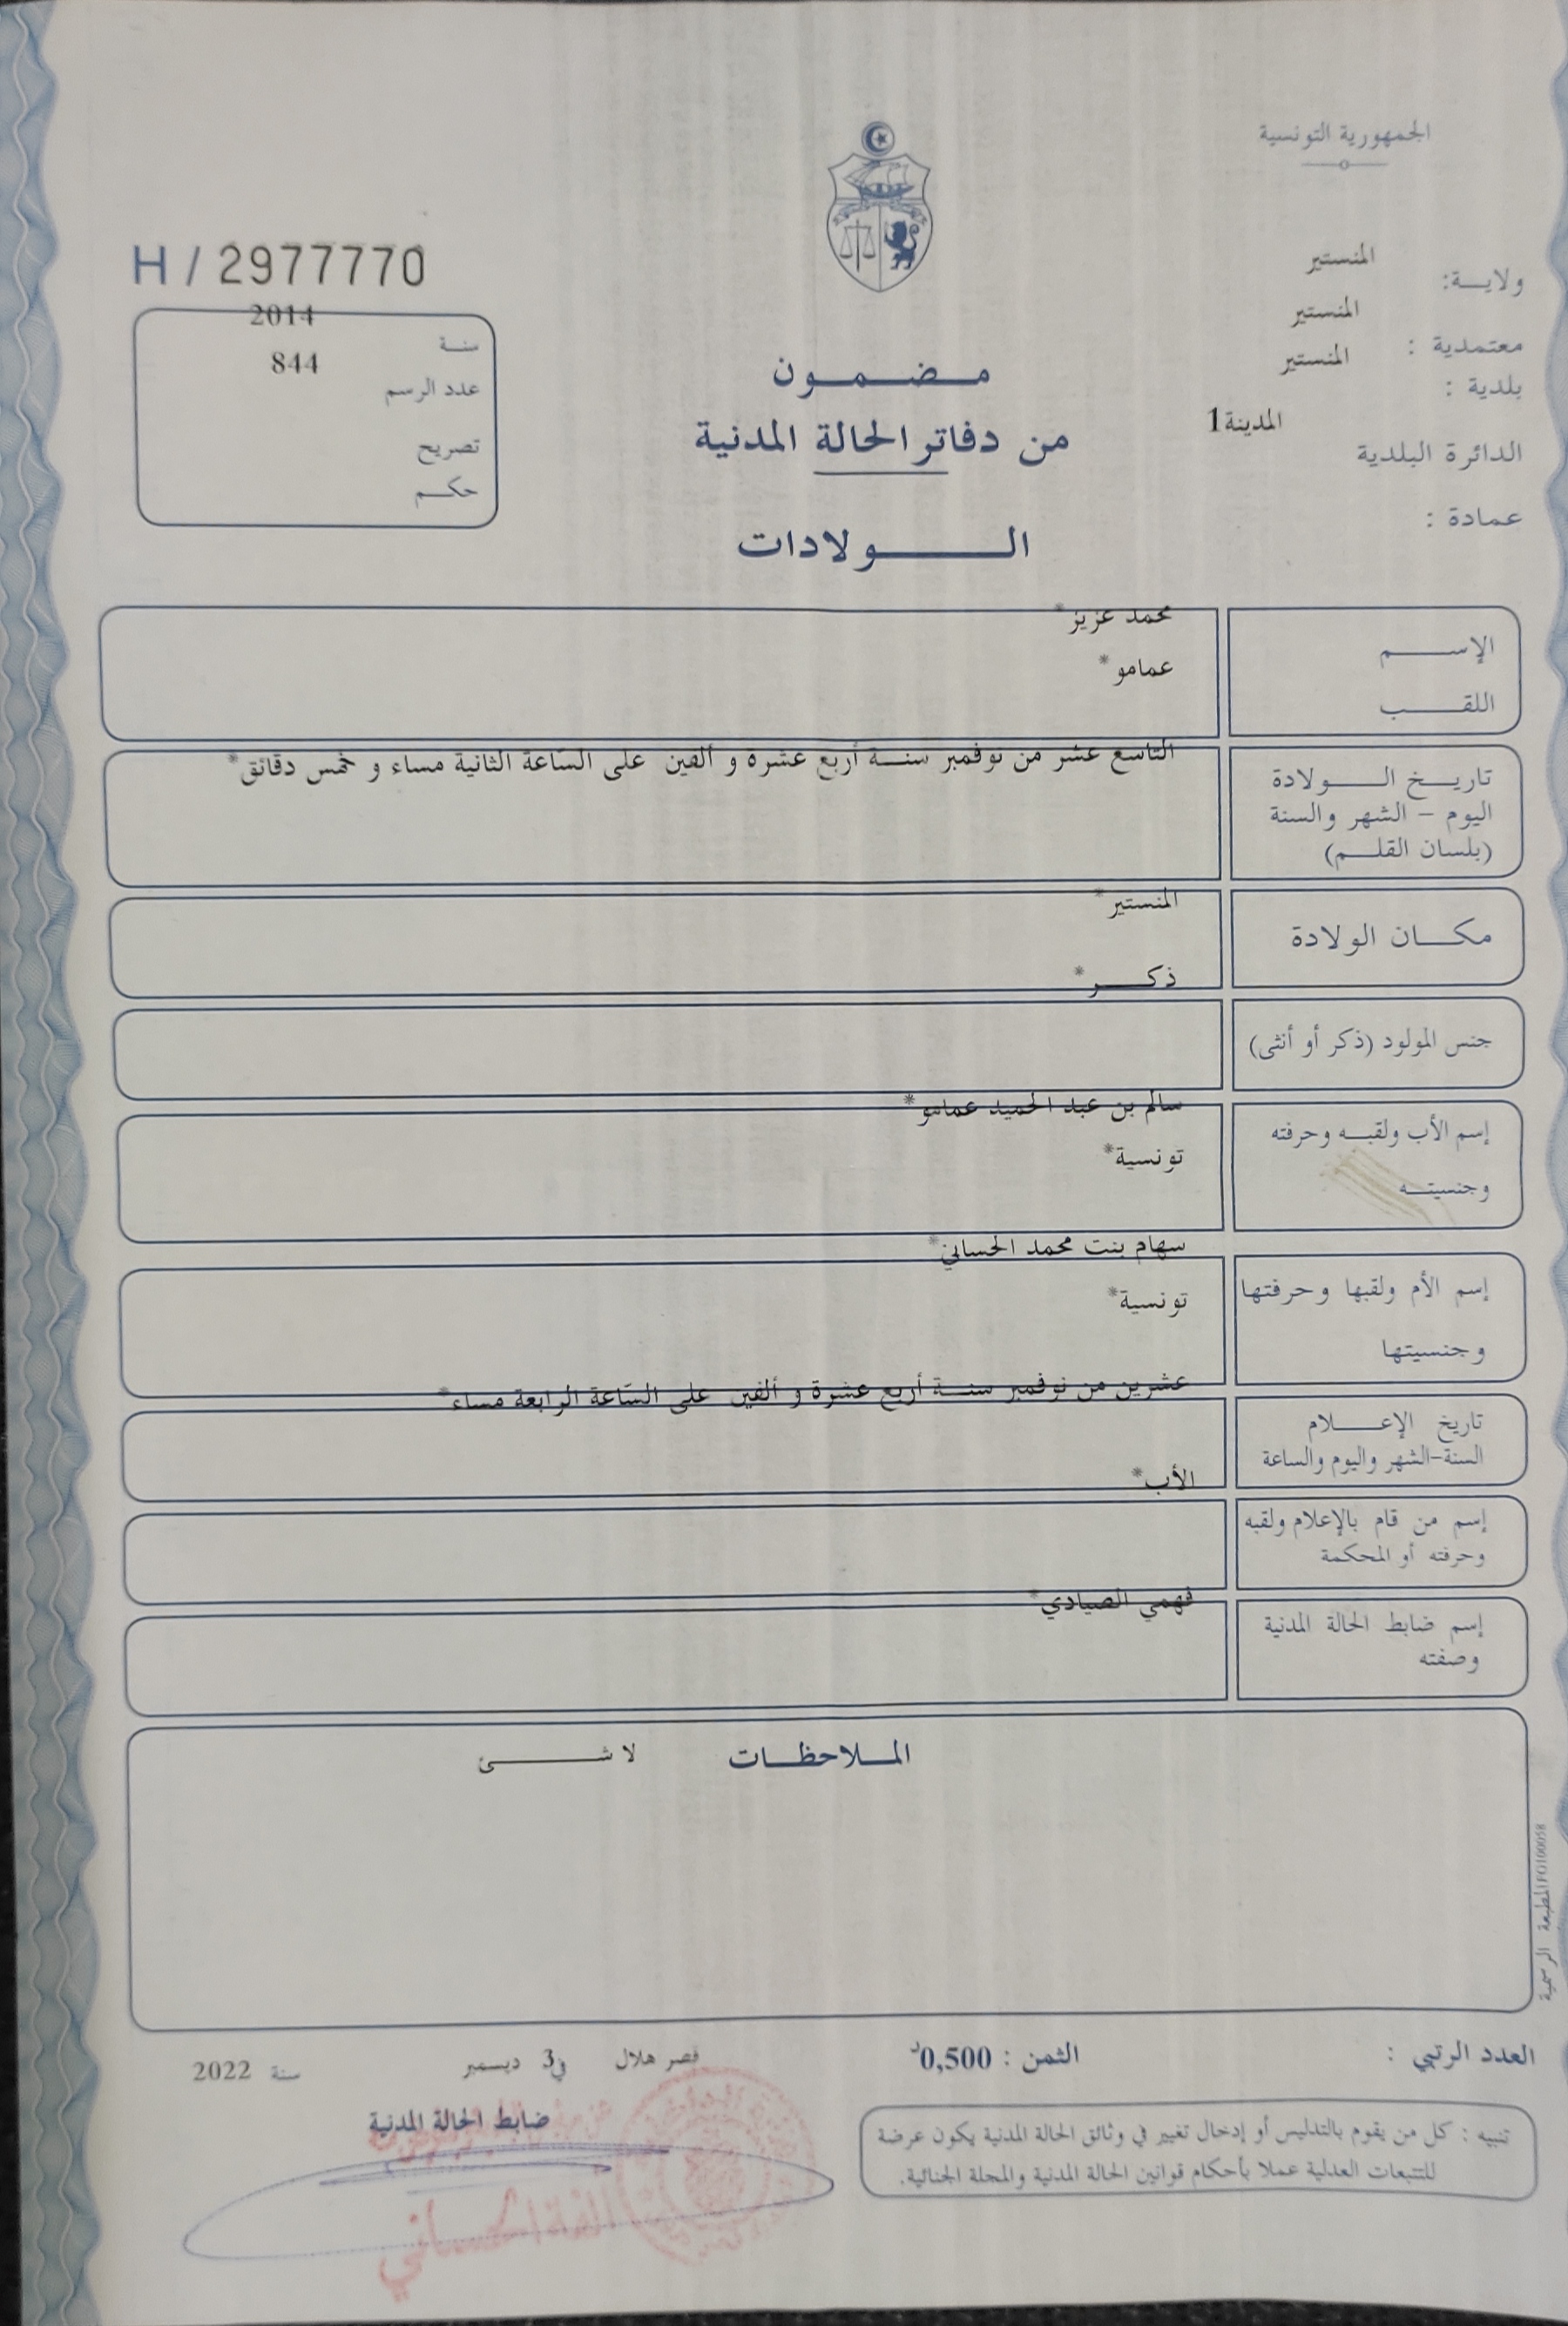 الجمهورية التونسية
ولايـــة: المنستير
معتمدية : المنستير
بلدية : المنستير
الدائرة البلدية المدينة1
عمادة :
H / 2977770
سنـة 2014
عدد الرسم 844
تصريح
حكـــم
مـــضـــمـــون
من دفاتر الحالة المدنية
الـــــولادات
الإســـــم محمد عزيز*
اللقـــــب عمامو*
تاريـــخ الـــــولادة التاسع عشر من نوفمبر سنـــة أربع عشرة و ألفين على السّاعة الثانية مساء و خمس دقائق*
اليوم – الشهر والسنة
(بلسان القلـــم)
مكـــان الولادة المنستير*
ذكـــر*
جنس المولود (ذكر أو أنثى)
إسم الأب ولقبـــه وحرفته سالم بن عبد الحميد عمامو*
وجنسيتـــه تونسية*
إسم الأم ولقبها وحرفتها سهام بنت محمد الحساني*
وجنسيتها تونسية*
تاريخ الإعـــــلام عشرين من نوفمبر سنـــة أربع عشرة و ألفين على السّاعة الرابعة مساء*
السنة-الشهر واليوم والساعة
الأب*
إسم من قام بالإعلام ولقبه
وحرفته أو المحكمة
فهمي الصيادي*
إسم ضابط الحالة المدنية
وصفته
المـــلاحظـــات لا شـــــئ
المطبعة الرسمية
العدد الرتبي :
الثمن : 0,500د
قصر هلال في3 ديسمبر سنة 2022
ضابط الحالة المدنية
تنبيه : كل من يقوم بالتدليس أو إدخال تغيير في وثائق الحالة المدنية يكون عرضة
للتتبعات العدلية عملا بأحكام قوانين الحالة المدنية والمجلة الجنائية.